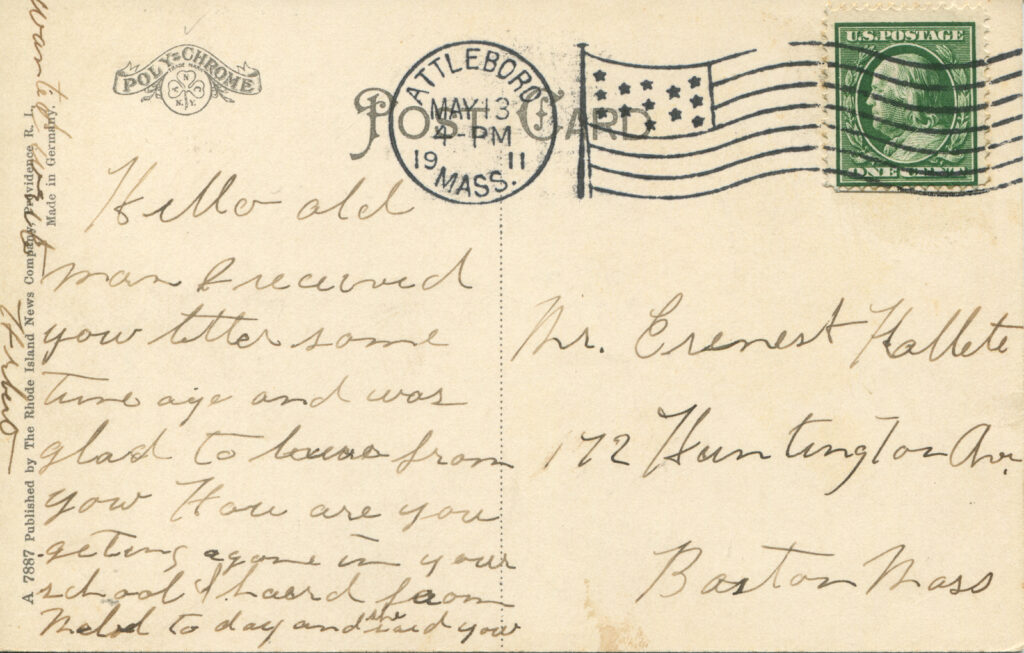 POLY-CHROME
TRADE MARK
N.Y.
POST CARD
ATTLEBORO
MAY 13
4-PM
19 11
MASS.
U.S. POSTAGE
ONE CENT
Hello old
man I received
your letter some
time ago and was
glad to from
you How are you
geting agone in your
school I heard from
to day and she said you
wanted
A 7887 Published by The Rhode Island News Company, Providence, R. I.
Made in Germany.
Mr. Erenest Hallete
172 Huntington Av.
Boston Mass